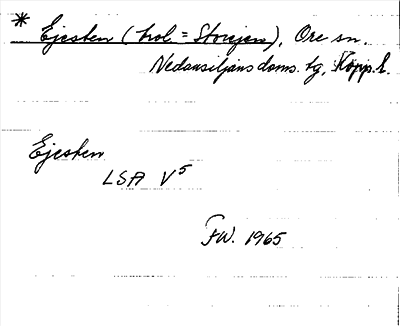 * Ejesten (trol = Storejen), Ore sn.
Nedansiljans doms. tg, Kopp. l.
Ejesten
LSA V5
FW. 1965